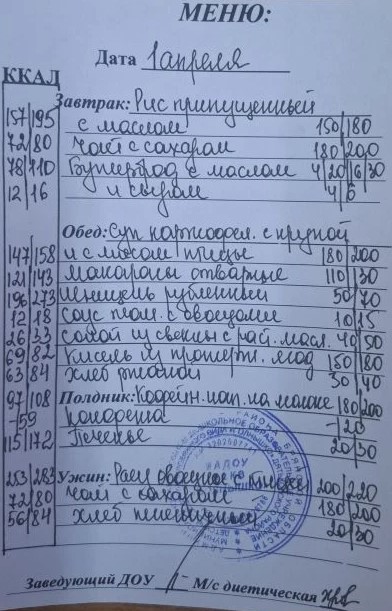 МЕНЮ:
ККАЛ Дата 1 апреля
157/195 Завтрак: Рис припущенный
с маслом 150/180
72/80 Чай с сахаром 180/200
78/110 Бутерброд с маслом 4/20/6/30
12/16 и сыром 4/6
Обед: Суп картофел. с крупой
147/158 и с мясом птицы 180/200
121/143 макароны отварные 110/130
196/273 шницель рубленный 50/70
12/18 соус том. с овощами 10/15
26/33 салат из свеклы с раст. масл. 40/50
69/82 Кисель из протерт. ягод 150/180
63/84 хлеб ржаной 30/40
97/108 Полдник: Кофейн. нап. на молоке 180/200
-/59 конфета -/20
115/172 Печенье 20/30
253/283 Ужин: Рагу овощное 200/220
72/80 Чай с сахаром 180/200
56/84 хлеб пшеничный 20/30
Заведующий ДОУ М/с диетическая